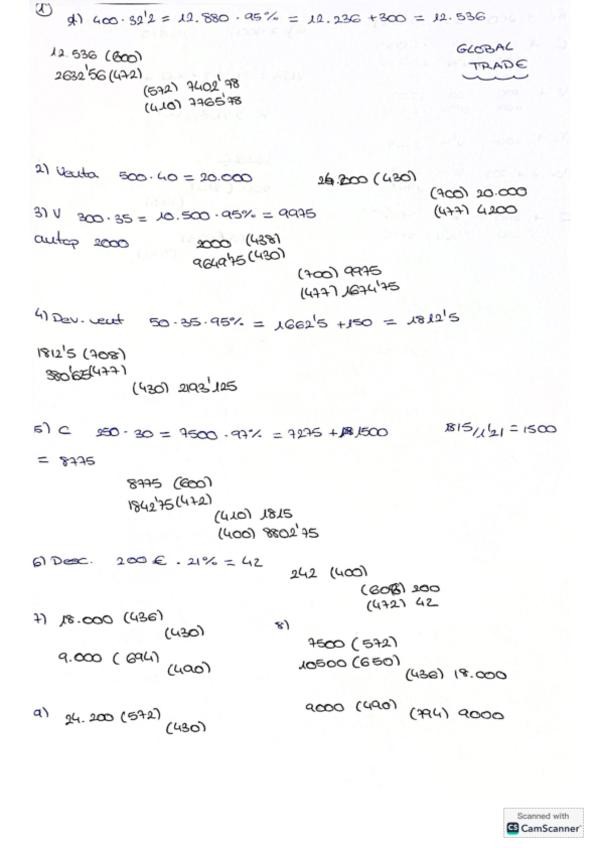 ① 1) 400 · 32'2 = 12.880 · 95% = 12.236 + 300 = 12.536
GLOBAL
TRADE
12.536 (600)
2632'56 (472)
(572) 7402'78
(410) 7765'78
2) Venta 500 · 40 = 20.000
24.200 (430)
(700) 20.000
(477) 4200
3) V 300 · 35 = 10.500 · 95% = 9975
anticp 2000
2000 (438)
9649'75 (430)
(700) 9975
(477) 1674'75
4) Dev. vent 50 · 35 · 95% = 1662'5 + 150 = 1812'5
1812'5 (708)
380'65 (477)
(430) 2193'125
5) C 250 · 30 = 7500 · 97% = 7275 + 1500
1815/1'21 = 1500
= 8775
8775 (600)
1842'75 (472)
(410) 1815
(400) 8802'75
6) Desc. 200 € · 21% = 42
242 (400)
(608) 200
(472) 42
7) 18.000 (436)
(430)
9.000 (694)
(490)
8)
7500 (572)
10500 (650)
(436) 18.000
9000 (490)
(794) 9000
9) 24.200 (572)
(430)
Scanned with
CS CamScanner